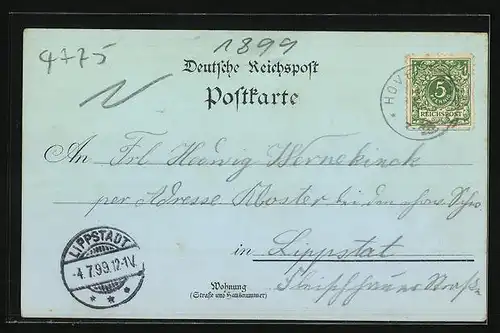 4775
1899
Deutsche Reichspost
Postkarte
5
REICHSPOST
HOV
An Frl Hedwig Wernekinck
per Adresse Kloster bei den
in Lippstat
LIPPSTADT
-4.7.99.12-1V.
Wohnung
(Straße und Hausnummer)
Fleischhauer Straße